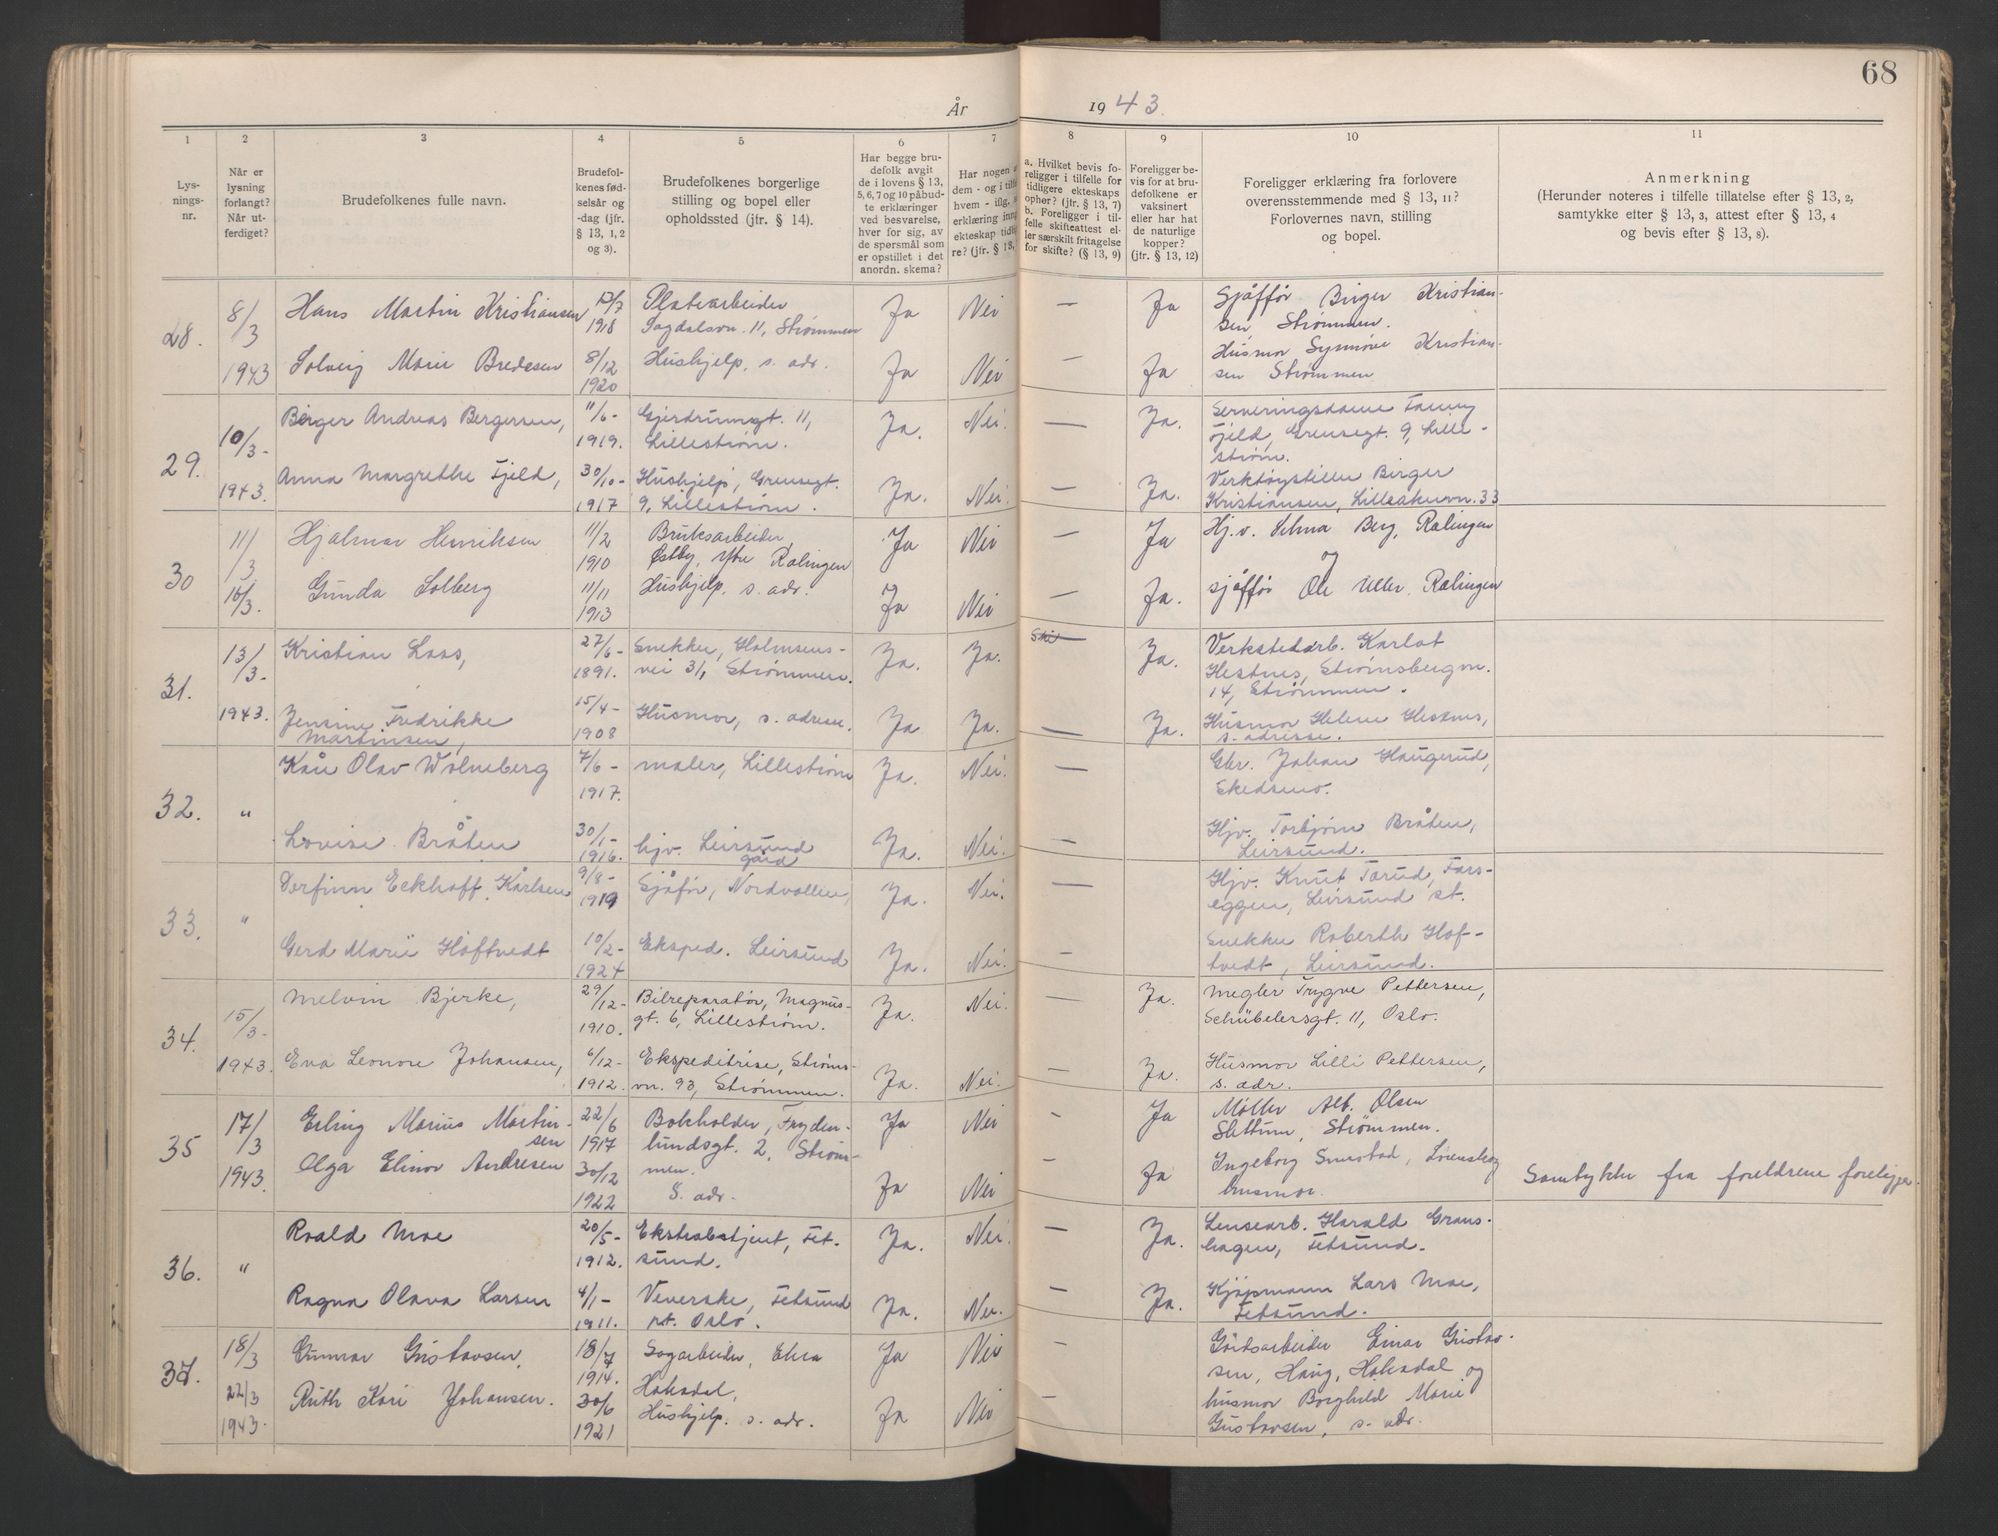 68
År 1943.
1 2 3 4 5 6 7 8 9 10 11
Lys-
nings-
nr.
Når er
lysning
forlangt?
Når ut-
ferdiget?
Brudefolkenes fulle navn.
Brudefol-
kenes fød-
selsår og
-dag (jfr.
§ 13, 1, 2
og 3).
Brudefolkenes borgerlige
stilling og bopel eller
opholdssted (jfr. § 14).
Har begge bru-
defolk avgit
de i lovens § 13,
5, 6, 7 og 10 påbud-
te erklæringer
ved besvarelse,
hver for sig, av
de spørsmål som
er opstillet i det
anordn. skema?
Har nogen
dem - og i tilf
hvem - iflg.
erklæring inng
ekteskap tidli
re? (jfr. § 13,
a. Hvilket bevis fo-
religger i tilfelle for
tidligere ekteskaps
ophør? (jfr. § 13, 7)
b. Foreligger i til-
felle skifteattest el-
ler særskilt fritagelse
for skifte? (§ 13, 9)
Foreligger be-
vis for at bru-
defolkene er
vaksinert
eller har hat
de naturlige
kopper?
(jfr. § 13, 12)
Foreligger erklæring fra forlovere
overensstemmende med § 13, 11?
Forlovernes navn, stilling
og bopel.
Anmerkning
(Herunder noteres i tilfelle tillatelse efter § 13, 2,
samtykke efter § 13, 3, attest efter § 13, 4
og bevis efter § 13, 8).
28. 8/3 Hans Martin Kristiansen 13/7 Platearbeider Ja Nei — Ja Sjåffør Birger Kristian-
1918 Sagdalsvn. 11, Strømmen sen Strømmen.
1943 Solveig Marie Bredesen 8/12 Hushjelp, s. adr. Ja Nei — Ja Husmor Synnøve Kristian-
1920 sen Strømmen
29. 10/3- Birger Andreas Bergersen, 11/6- Gjerdrumsgt. 11, Ja. Nei. — Ja. Serveringsdame Fanny
1919. Lillestrøm. Fjeld, Grensegt. 9, Lille-
strøm.
1943. Anna Margrethe Fjeld, 30/10- Hushjelp, Grensegt. Ja. Nei. — Ja. Verktøystiller Birger
1917 9, Lillestrøm. Kristiansen, Lilleakervn. 33
30 11/3 Hjalmar Henriksen 11/2 Bruksarbeider, Ja Nei — Ja Hj.v. Selma Berg, Rælingen
1910 Østby, Ytre Rælingen og
16/3. Gunda Solberg 11/11 Hushjelp. s. adr. Ja Nei — Ja. sjåffør Ole Uller, Rælingen
1913
31. 13/3- Kristian Laas, 27/6- Snekker, Holmsens- Ja. Ja. Ski Ja. Verkstedarb. Karlot
1891. vei 31, Strømmen. Hestnes, Strømsbergvn.
14, Strømmen.
1943. Jensine Fredrikke 15/4- Husmor, s. adresse. Ja Ja. — Ja. Husmor Helene Hestnes,
Martinsen, 1908 s. adresse.
32. " Kåre Olav Wolneberg 7/6- maler, Lillestrøm Ja. Nei. — Gbr. Johan Haugerud,
1917. Skedsmo.
Lovise Bråten 30/1- hjv. Leirsund Ja. Nei. — Hjv. Torbjørn Bråten,
1916. gård Leirsund.
33. " Dorfinn Eckhoff Karlsen 9/8- Sjåfør, Nordvollen, Ja. Nei. — Hjv. Knut Torud, Fars-
1919 eggen, Leirsund st.
Gerd Marie Hoftvedt 10/2- Eksped. Leirsund Ja. Nei. — Snekker Roberth Hof-
1924 tvedt, Leirsund.
34. 15/3- Melvin Bjerke, 29/12- Bilreparatør, Magnus- Ja. Nei. Ja. Megler Trygve Pettersen,
1910. gt. 6, Lillestrøm. Schübelersgt. 11, Oslo.
1943. Eva Leonore Johansen, 6/12- Ekspeditrise, Strøms- Ja. Nei. Ja. Husmor Lilli Pettersen,
1912. vn. 93, Strømmen. s. adr.
35 17/3 Erling Marius Martin- 22/6 Bokholder, Fryden- Ja Nei - Ja Møller Alb. Olsen
sen 1917 lundsgt. 2, Strøm- Slettum, Strømmen.
1943. Olga Elinor Andresen 30/12 men. Ja Nei - Ja Ingeborg Smestad, Lørenskog Samtykke fra foreldrene foreligger.
1922 S. adr. husmor.
36. " Roald Moe 20/5- Ekstrabetjent, Fet- Ja. Nei. — Ja. Lensearb. Harald Grans-
1912. sund. hagen, Fetsund.
Ragna Olava Larsen 4/1- Veverske, Fetsund Ja. Nei. — Ja. Kjøpmann Lars Moe,
1911. pt. Oslo. Fetsund.
37. 18/3 Gunnar Gustavsen, 18/7 Sagarbeider, Ekra Ja Nei — Gårdsarbeider Einar Gustav-
1914. Hakadal, sen, Haug, Hakadal og
22/3 Ruth Kari Johansen. 30/6 Hushjelp. s. adr. Ja Nei - husmor Borghild Marie
1943. 1921 Gustavsen, s. adr.